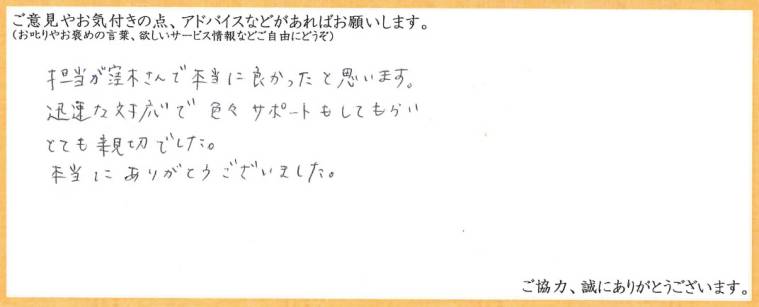 ご意見やお気付きの点、アドバイスなどがあればお願いします。
(お叱りやお褒めの言葉、欲しいサービス情報などご自由にどうぞ)
担当が窪木さんで本当に良かったと思います。
迅速な対応で色々サポートもしてもらい
とても親切でした。
本当にありがとうございました。
ご協力、誠にありがとうございます。